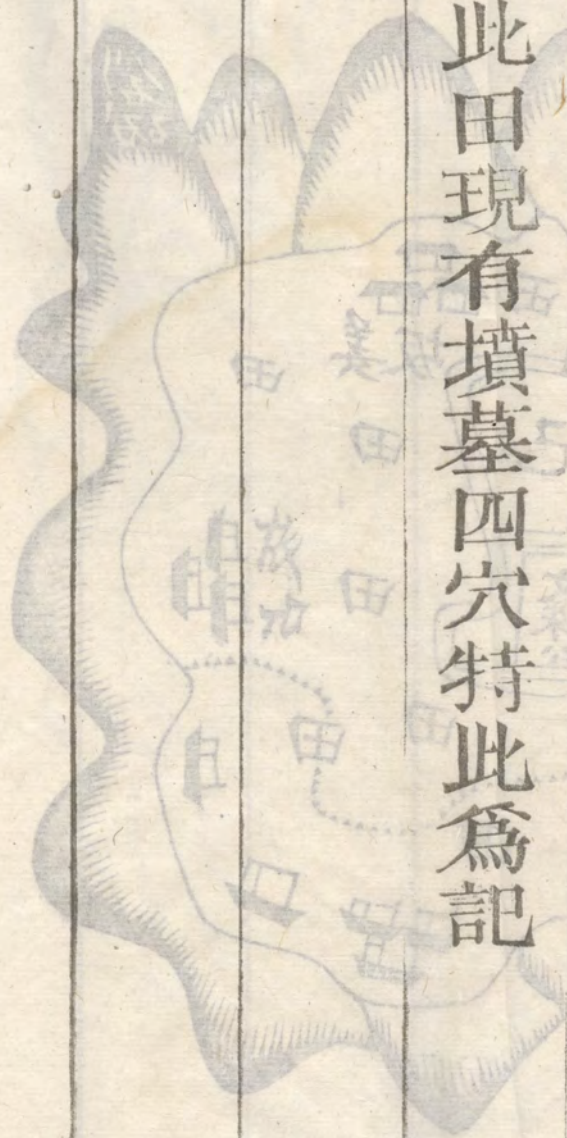 此田現有墳墓四穴特此爲記